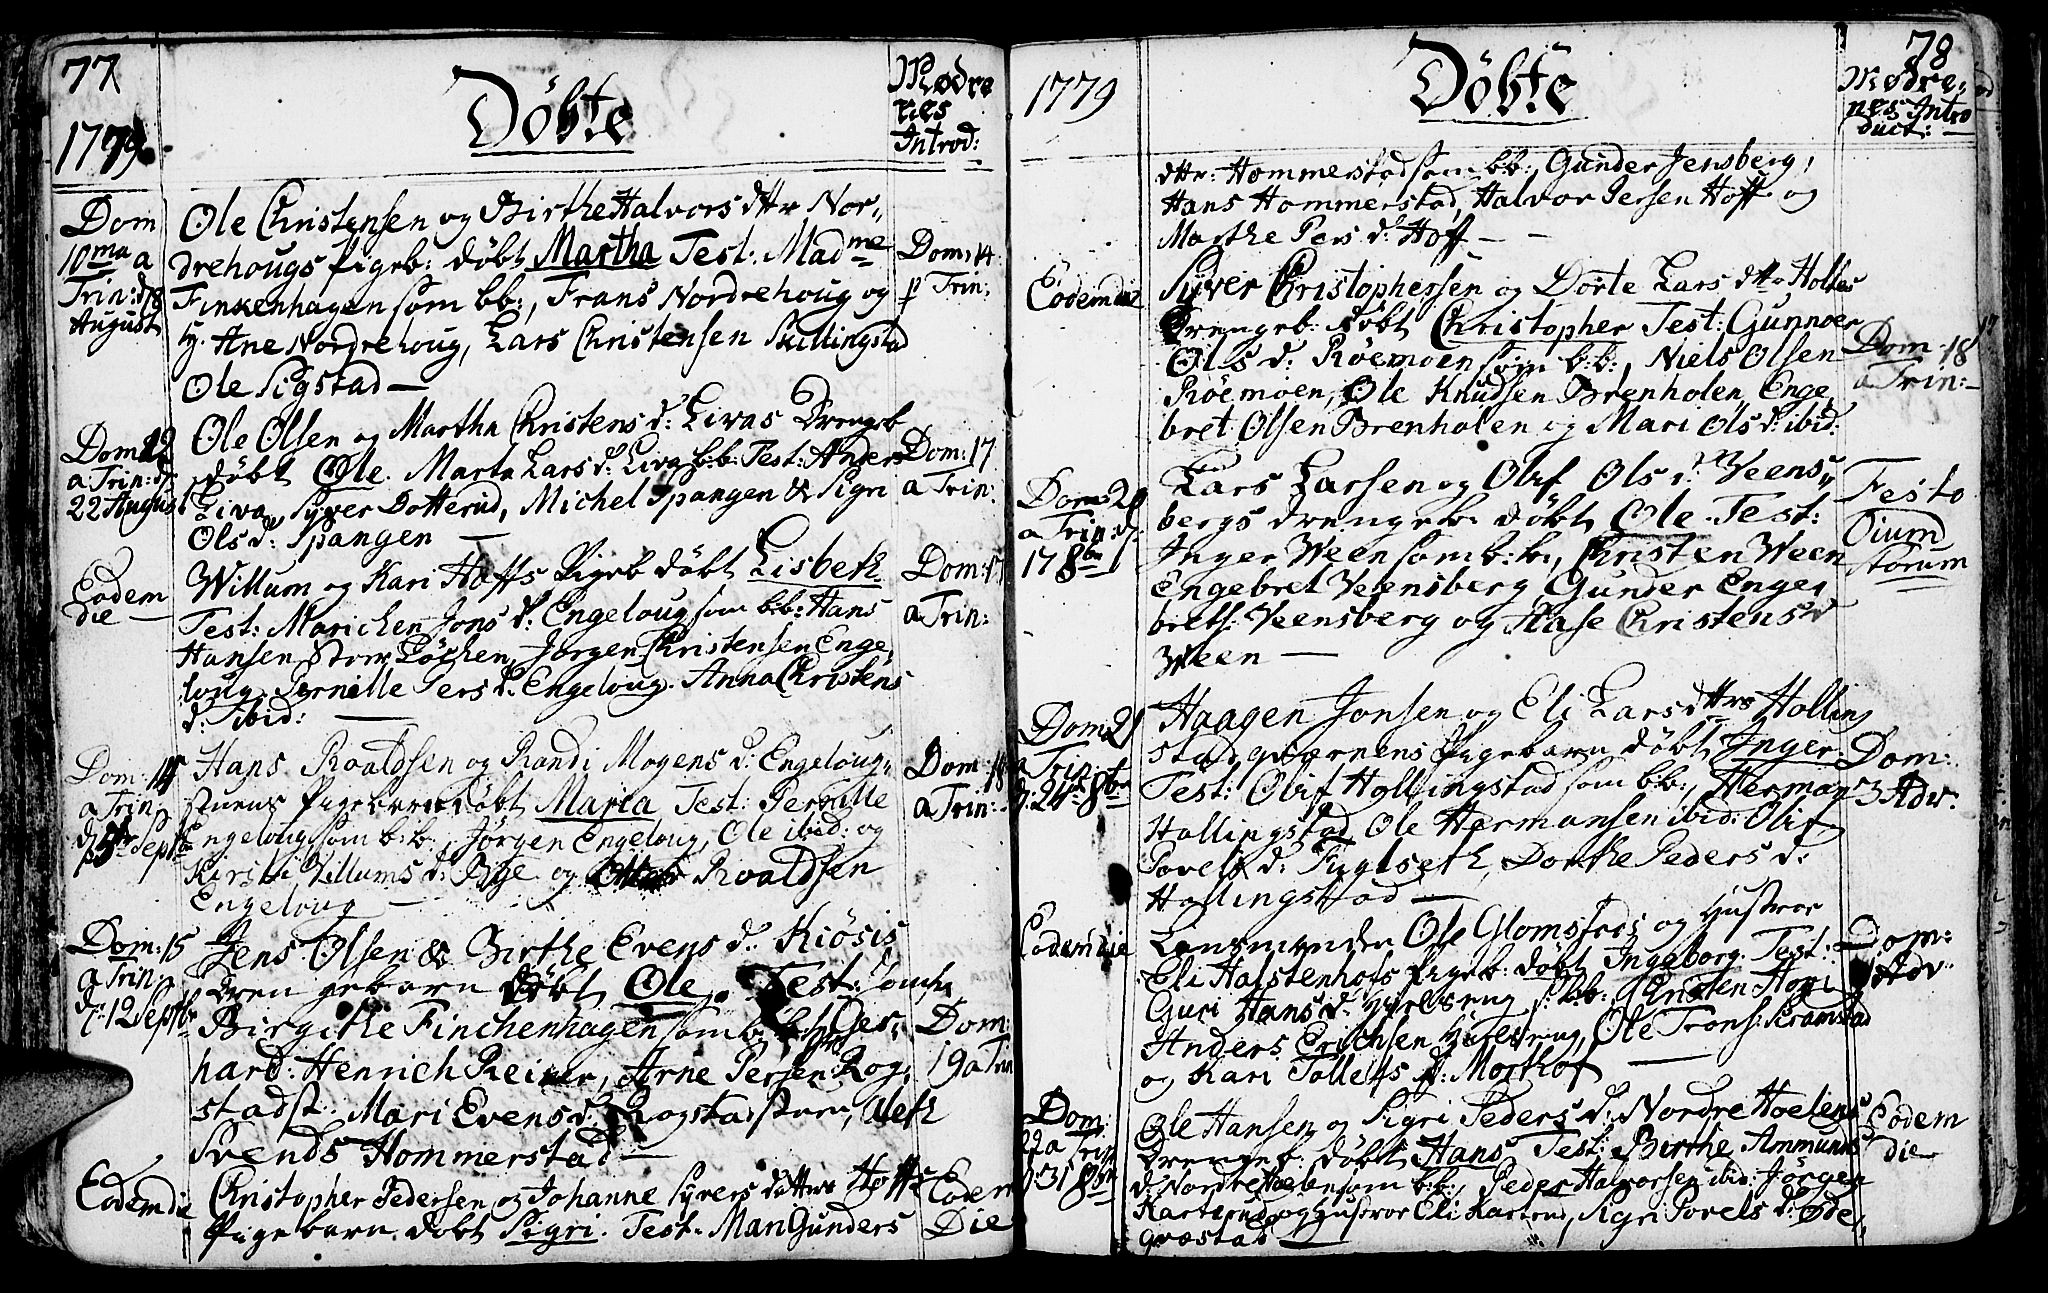 77
1779
Döbte
Mødre
nes
Introd:
Dom
10ma a
Trin: d 8
August
Ole Christensen og Birthe Halvors dttr Nor,,
drehougs Pigeb: döbt Martha Test: Madme
Finkenhagen som bb:, Frans Nordrehoug og
H. Ane Nordrehoug, Lars Christensen Skillingstad
Ole Sigstad —
Dom: 14
p Trin:
Dom 12
a Trin: d:
22 August
Ole Olsen og Martha Christens d: Livas Drengeb
döbt Ole. Marta Lars d: Liva b.b: Test: Anders
Liva, Syver Dotterud, Michel Spangen & Sigri
Ols d: Spangen —
Dom: 17
a Trin:
Eodem
die —
Willum og Kari Hoffs Pigeb döbt Lisbeth
Test: Marichen Jons d: Engeloug som b.b: Hans
Hansen Löchen, Jörgen Christensen Enge,
loug. Pernille Pers d: Engeloug. Anna Christens
d: ibid: —
Dom: 17
a Trin:
Dom: 14
a Trin
d 5te Septb
Hans Roaldsen og Randi Mogens d: Engeloug,,
stuens Pigebarn döbt Maria Test: Pernille
Engeloug som b.b:, Jörgen Engeloug, Ole ibid: og
Kirsti Villums d: Bye og Roaldsen
Engeloug —
Dom: 18
a Trin:
Dom: 15
a Trin
d: 12 Septbr
Jens Olsen & Birthe Evens d: Kiösis
Drengebarn döbt Ole, Test: Jomfr
Birgithe Finchenhagen som b.b: Ger,,
hard: Henrich Reimer, Arne Persen Rog,
stadst: Mari Evens d: Rogstadstuen, Aleth
Svends Hommerstad —
Dom:
19 a Trin
Eodem die
Christopher Pedersen og Johanne Syvers dattrs Hoffs
Pigebarn döbt Sigri. Test: Mari Gunders
Eodem
Die
78
1779
Döbte
Mødre,,
nes Intro
duct:
dttr: Hommerstad som b.b:, Gunder Jensberg,
Hans Hommerstad, Halvor Persen Hoff og
Marthe Pers d: Hoff — —
Eodem die
Syver Christophersen og Dorte Lars dttr Holtes
Drengeb: döbt Christopher Test: Gunnoer
Ols d: Röemoen som b.b:, Niels Olsen
Röemoen, Ole Knudsen Brenholen, Enge,
bret Olsen Brenholen og Mari Ols d: ibid:
Dom: 18
a Trin: —
Dom 20
a Trin: d:
17 8br
Lars Larsen og Olif Ols d: Veens,,
bergs drengeb: döbt Ole. Test:
Inger Ween som b.b:, Christen Ween
Engebret Veensberg Gunder Enge,
brets: Veensberg og Aase Christens d
Ween —
Festo
Oium
storum
Dom 21
a Trin:
d: 24 8br
Haagen Jonsen og Eli Lars dttrs Holling
stad,qværnens Pigebarn döbt Inger.
Test: Olif Hollingstad som b.b:, Herman
Hollingstad Ole Hermansen ibid: Olif
Povels d: Fuglseth, Dorthe Peders d:
Hollingstad —
Dom:
3 Adv:
Eodem die
Lensmanden Ole Glomsfros og Hustroe
Eli Halstenhofs Pigeb: döbt Ingeborg. Test:
Guri Hans d: Hvelseng s. bb: Christen Hogi
Anders Erichsen Hvelseng, Ole Trons: Kramstad
og Kari Tollefs d: Morthof —
Dom:
Adv:
Dom:
22 a Trin
d 31 8br
Ole Hansen og Sigri Peders d: Nordre Hoelens
Drengeb: döbt Hans Test: Birthe Ammunds
d: Nordre Hoelen som b.b:, Peder Halvorsen ibid: Jörgen
Karterud og Hustroe Eli Karterud, Sigri Povels d: Øde,
gvæstad —
Eodem
die